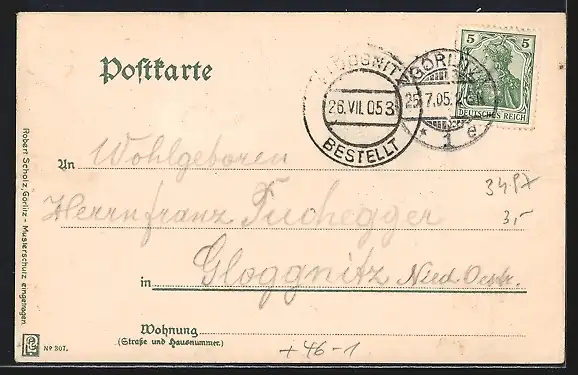 Postkarte
GLOGGNITZ
26.VII.05 3
BESTELLT
GÖRLITZ
25.7.05.
1
e
5 5
DEUTSCHES REICH
An Wohlgeboren
34
3,-
Herrn Franz Fuchegger
in Gloggnitz Nied. Oestr.
Wohnung
(Straße und Hausnummer.)
+46-1
Robert Scholz, Görlitz - Musterschutz eingetragen
No 307.